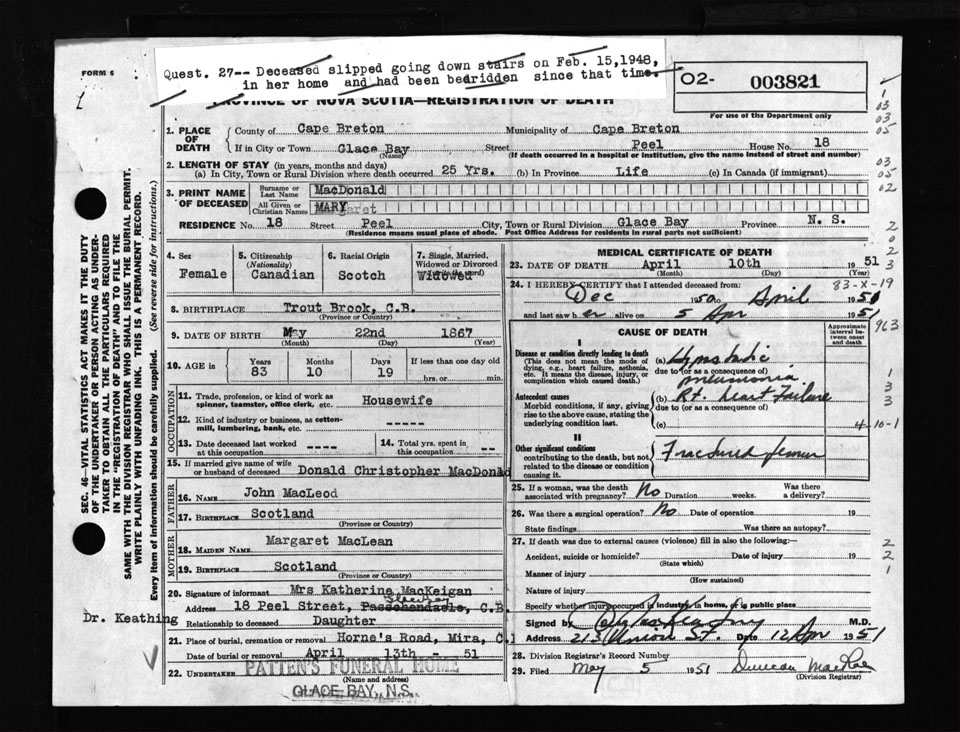 FORM 6
Quest. 27-- Deceased slipped going down stairs on Feb. 15,1948,
in her home and had been bedridden since that time.
O2- 003821
PROVINCE OF NOVA SCOTIA—REGISTRATION OF DEATH
For use of the Department only
1. PLACE OF DEATH
County of Cape Breton Municipality of Cape Breton
If in City or Town Glace Bay Street Peel House No. 18
(Name) (If death occurred in a hospital or institution, give the name instead of street and number)
2. LENGTH OF STAY (in years, months and days)
(a) In City, Town or Rural Division where death occurred 25 Yrs. (b) In Province Life (c) In Canada (if immigrant)
3. PRINT NAME OF DECEASED
Surname or Last Name MacDonald
All Given or Christian Names MARY
RESIDENCE No. 18 Street Peel City, Town or Rural Division Glace Bay Province N. S.
(Residence means usual place of abode. Post Office Address for residents in rural parts not sufficient)
4. Sex Female
5. Citizenship (Nationality) Canadian
6. Racial Origin Scotch
7. Single, Married, Widowed or Divorced Widowed
8. BIRTHPLACE Trout Brook, C.B.
(Province or Country)
9. DATE OF BIRTH May 22nd 1867
(Month) (Day) (Year)
10. AGE in Years 83 Months 10 Days 19 If less than one day old
hrs. or min.
OCCUPATION
11. Trade, profession, or kind of work as spinner, teamster, office clerk, etc. Housewife
12. Kind of industry or business, as cotton-mill, lumbering, bank, etc. ----
13. Date deceased last worked at this occupation ----
14. Total yrs. spent in this occupation ----
15. If married give name of wife or husband of deceased Donald Christopher MacDonald
FATHER
16. NAME John MacLeod
17. BIRTHPLACE Scotland
(Province or Country)
MOTHER
18. MAIDEN NAME Margaret MacLean
19. BIRTHPLACE Scotland
(Province or Country)
20. Signature of informant Mrs Katherine MacKeigan
Address 18 Peel Street, Passchendaele, C.B.
Glace Bay
Relationship to deceased Daughter
21. Place of burial, cremation or removal Horne's Road, Mira, C.
Date of burial or removal April 13th - 51
22. UNDERTAKER PATTEN'S FUNERAL HOME
(Name and address)
GLACE BAY, N.S.
MEDICAL CERTIFICATE OF DEATH
23. DATE OF DEATH April 10th 1951
(Month) (Day) (Year)
24. I HEREBY CERTIFY that I attended deceased from: 83-X-19
Dec 1950 to April 1951
and last saw her alive on 5 Apr 1951
CAUSE OF DEATH
Approximate interval between onset and death
I
Disease or condition directly leading to death
(This does not mean the mode of dying, e.g., heart failure, asthenia, etc. It means the disease, injury, or complication which caused death.)
(a) Hypostatic pneumonia
due to (or as a consequence of)
Antecedent causes
Morbid conditions, if any, giving rise to the above cause, stating the underlying condition last.
(b) Rt. heart failure
due to (or as a consequence of)
(c)
II
Other significant conditions
contributing to the death, but not related to the disease or condition causing it.
Fractured femur
25. If a woman, was the death associated with pregnancy? No Duration weeks. Was there a delivery?
26. Was there a surgical operation? No Date of operation 19
State findings Was there an autopsy?
27. If death was due to external causes (violence) fill in also the following:—
Accident, suicide or homicide? Date of injury 19
(State which)
Manner of injury
(How sustained)
Nature of injury
Specify whether injury occurred in industry, in home, or in public place
Signed by M.D.
Address 213 Union St. Date 12 Apr 1951
28. Division Registrar's Record Number
29. Filed May 5 1951 Duncan MacRae
(Division Registrar)
SEC. 46—VITAL STATISTICS ACT MAKES IT THE DUTY
OF THE UNDERTAKER OR PERSON ACTING AS UNDER-
TAKER TO OBTAIN ALL THE PARTICULARS REQUIRED
IN THE "REGISTRATION OF DEATH" AND TO FILE THE
SAME WITH THE DIVISION REGISTRAR WHO SHALL ISSUE THE BURIAL PERMIT.
WRITE PLAINLY WITH UNFADING INK. THIS IS A PERMANENT RECORD.
Every item of information should be carefully supplied. (See reverse side for instructions.)
Dr. Keathing
1
03
03
05
03
05
02
2
0
2
3
963
1
3
3
4-10-1
2
2
1